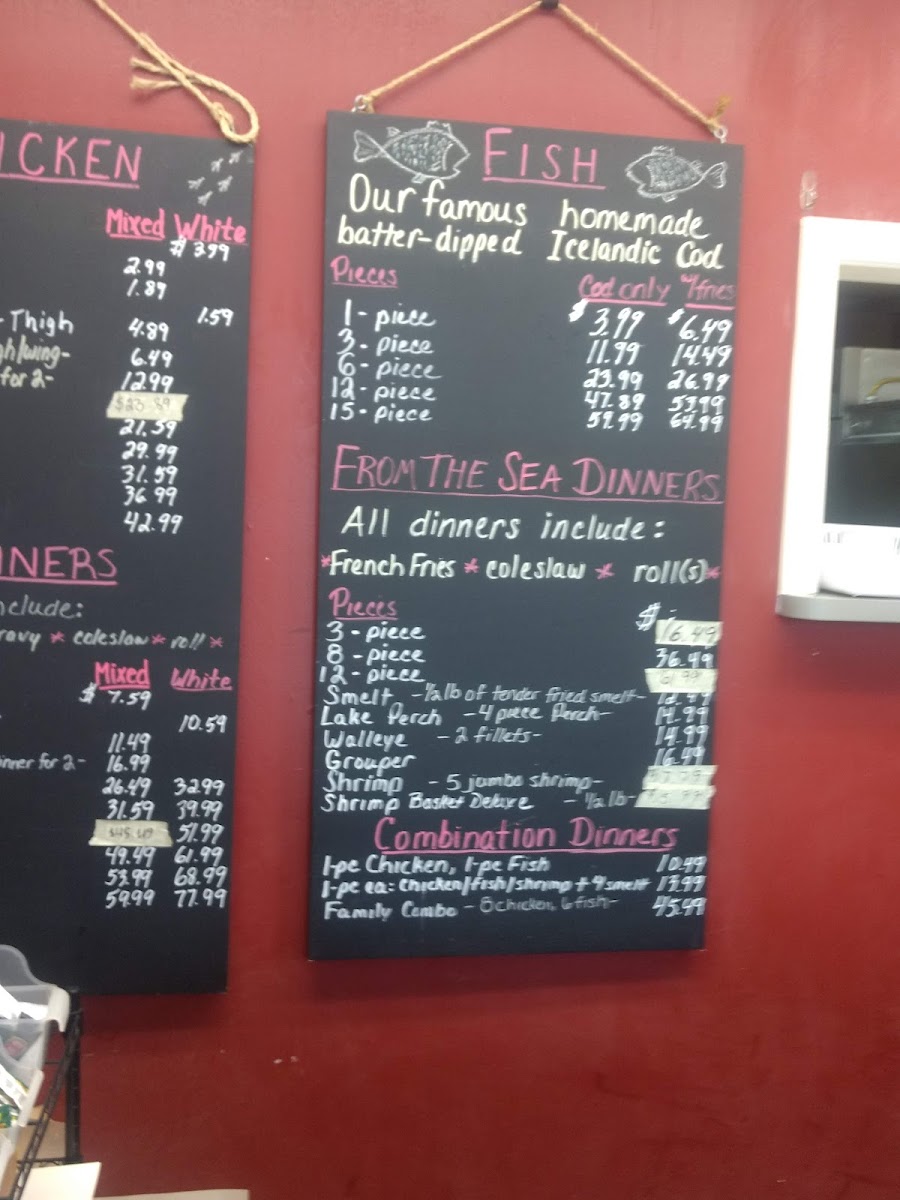 ICKEN
Mixed White
$ 3.99
2.99
1.89
1.59
- Thigh 4.89
gh/wing- 6.49
for 2- 12.99
$23.89
21.59
29.99
31.59
36.99
42.99
INNERS
nclude:
ravy * coleslaw * roll *
Mixed White
$ 7.59
10.59
11.49
inner for 2- 16.99
26.49 32.99
31.59 39.99
51.99
49.49 61.99
53.99 68.99
59.99 77.99
FISH
Our famous homemade
batter-dipped Icelandic Cod
Pieces Cod only w/fries
1 - piece $ 3.99 $ 6.49
3 - piece 11.99 14.49
6 - piece 23.99 26.99
12 - piece 47.89 53.99
15 - piece 59.99 64.99
FROM THE SEA DINNERS
All dinners include:
*French Fries * coleslaw * roll(s)*
Pieces $
3 - piece 16.49
8 - piece 36.49
12 - piece 61.99
Smelt - 1/2 lb of tender fried smelt- 12.49
Lake Perch - 4 piece Perch- 14.99
Walleye - 2 fillets- 14.99
Grouper 16.49
Shrimp - 5 jumbo shrimp-
Shrimp Basket Deluxe - 1/2 lb-
Combination Dinners
1-pc Chicken, 1-pc Fish 10.49
1-pc ea: Chicken/fish/shrimp + 4 smelt 13.99
Family Combo - 8 chicken, 6 fish- 45.99